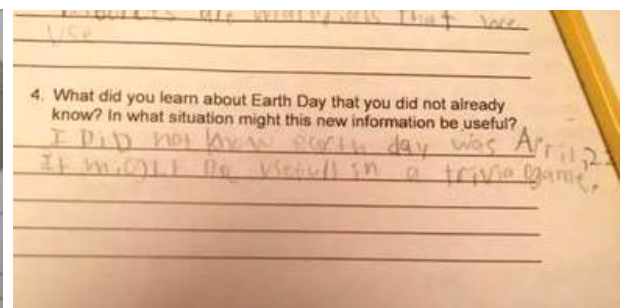 are materials that we
use
4. What did you learn about Earth Day that you did not already
know? In what situation might this new information be useful?
I DiD not know earth day was April, 22
It might be usefull in a trivia game.